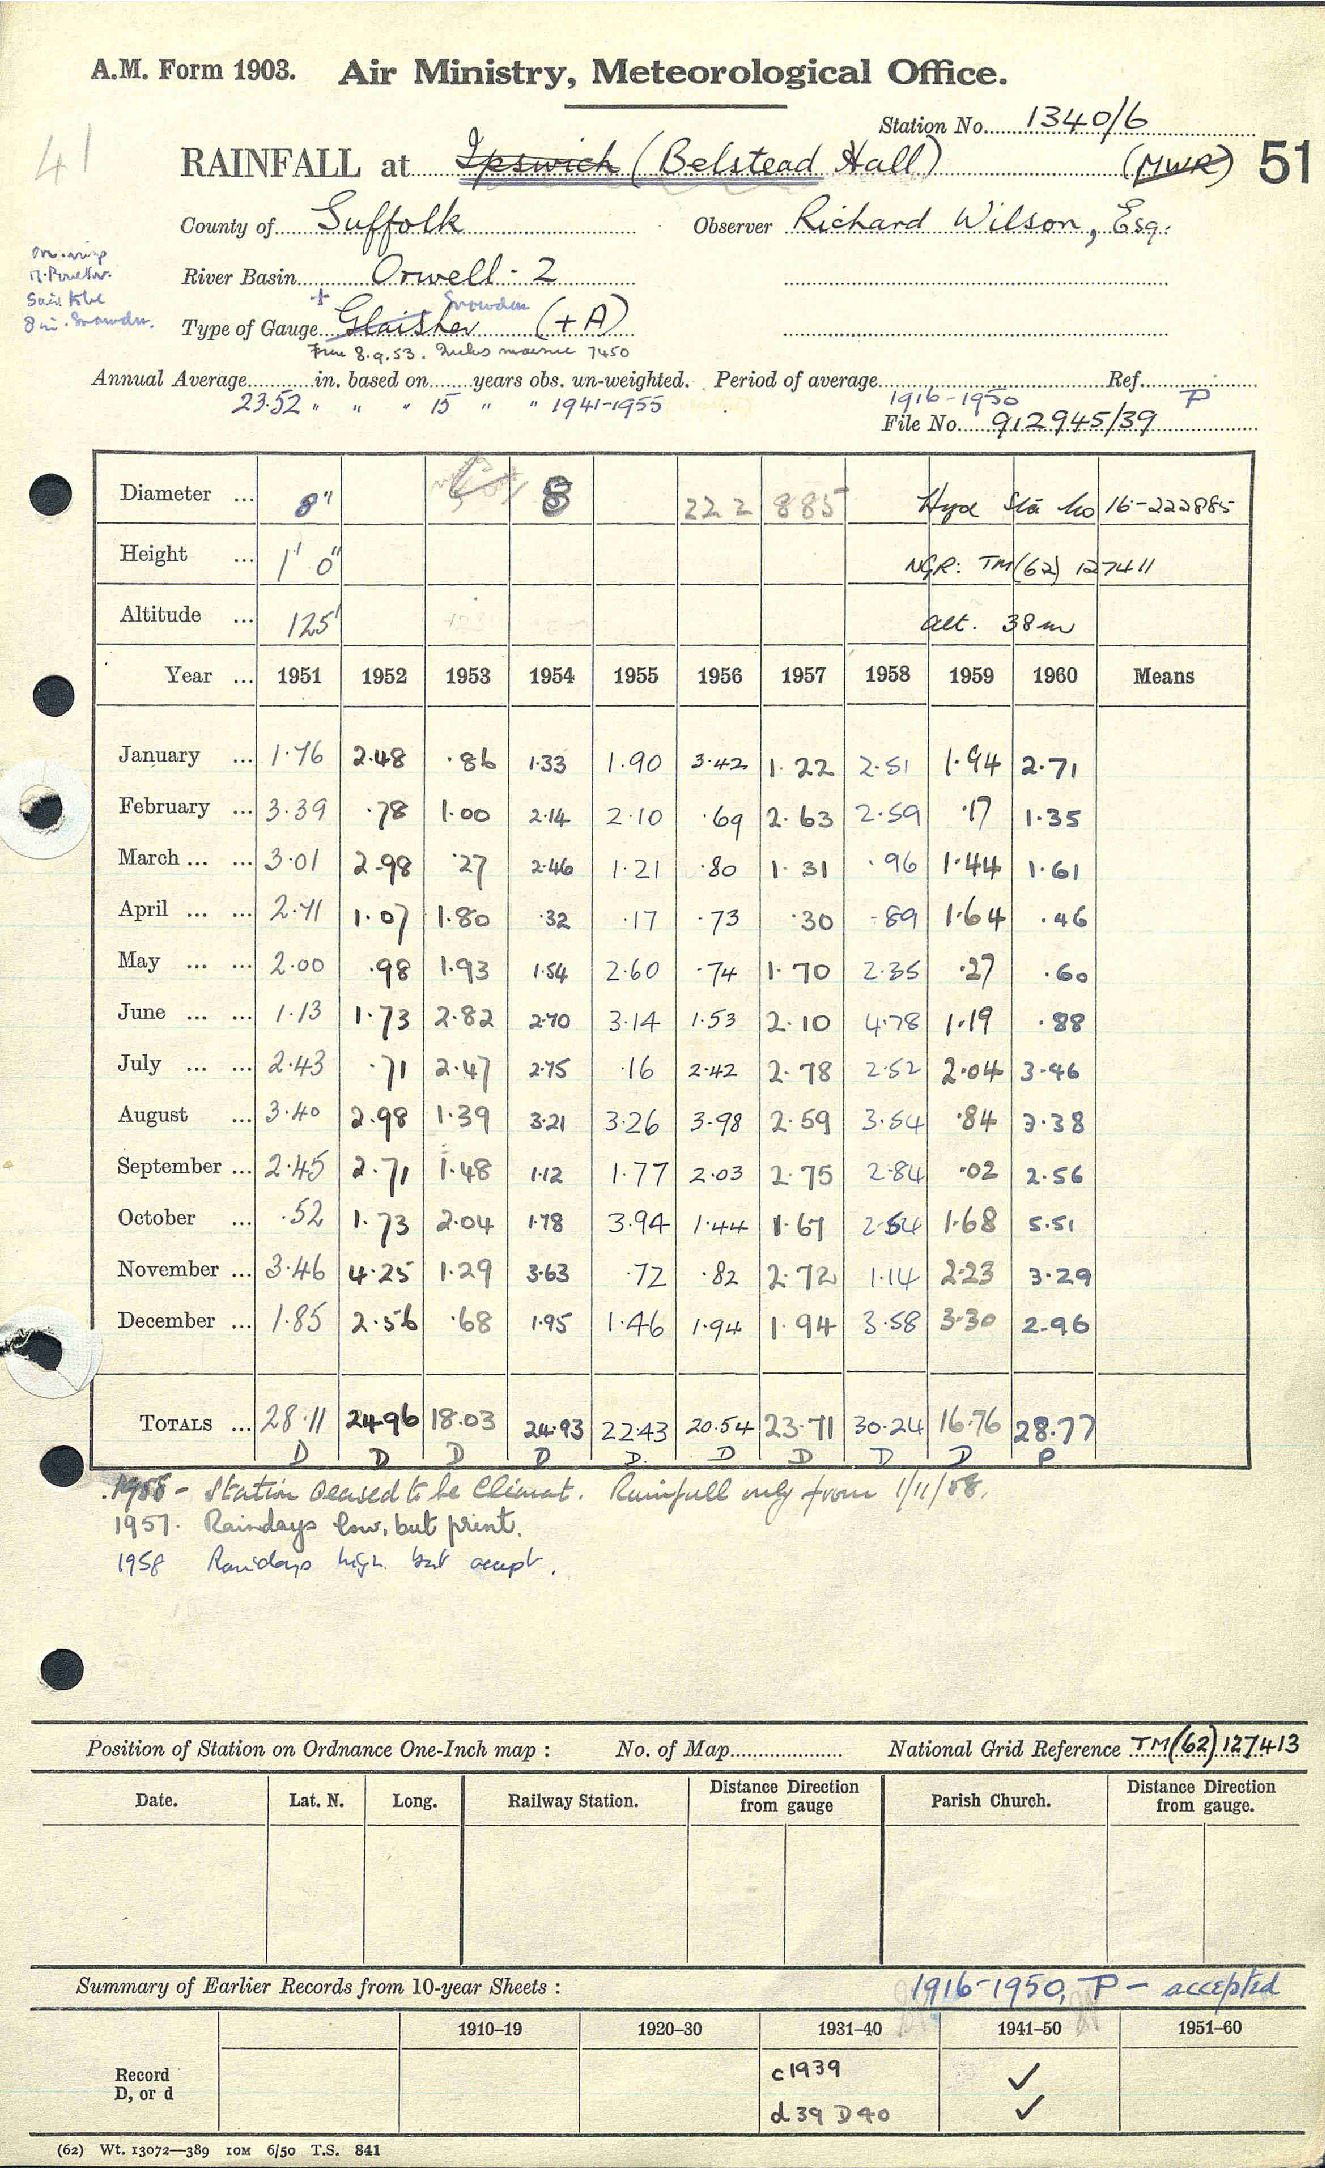 A.M. Form 1903. Air Ministry, Meteorological Office.
Station No. 1340/6
41
RAINFALL at Ipswich (Belstead Hall) (MWR) 51
County of Suffolk Observer Richard Wilson, Esq.
River Basin Orwell - 2
Snowdon
Type of Gauge Glaisher (+A)
From 8.9.53. 7450
Annual Average in. based on years obs. un-weighted. Period of average 1916-1950 Ref. P
23.52 " " " 15 " " 1941-1955
File No. 912945/39
Diameter ... 8" 8 222 885 Hyd Sta No 16-222885
Height ... 1' 0" NGR: TM(62) 127411
Altitude ... 125' Alt. 38m
Year ... 1951 1952 1953 1954 1955 1956 1957 1958 1959 1960 Means
January ... 1.76 2.48 .86 1.33 1.90 3.42 1.22 2.51 1.94 2.71
February ... 3.39 .78 1.00 2.14 2.10 .69 2.63 2.59 .17 1.35
March ... ... 3.01 2.98 .27 2.46 1.21 .80 1.31 .96 1.44 1.61
April ... ... 2.71 1.07 1.80 .32 .17 .73 .30 .89 1.64 .46
May ... ... 2.00 .98 1.93 1.54 2.60 .74 1.70 2.35 .27 .60
June ... ... 1.13 1.73 2.82 2.70 3.14 1.53 2.10 4.78 1.19 .88
July ... ... 2.43 .71 2.47 2.75 .16 2.42 2.78 2.52 2.04 3.46
August ... 3.40 2.98 1.39 3.21 3.26 3.98 2.59 3.54 .84 3.38
September ... 2.45 2.71 1.48 1.12 1.77 2.03 2.75 2.84 .02 2.56
October ... .52 1.73 2.04 1.78 3.94 1.44 1.67 2.54 1.68 5.51
November ... 3.46 4.25 1.29 3.63 .72 .82 2.72 1.14 2.23 3.29
December ... 1.85 2.56 .68 1.95 1.46 1.94 1.94 3.58 3.30 2.96
TOTALS ... 28.11 24.96 18.03 24.93 22.43 20.54 23.71 30.24 16.76 28.77
D D D D D. D D D D P
1958 - Station ceased to be Climat. Rainfall only from 1/11/58.
1957. Raindays low, but print.
1958 Raindays high but accept.
Position of Station on Ordnance One-Inch map : No. of Map National Grid Reference TM(62)127413
Date. Lat. N. Long. Railway Station. Distance Direction from gauge Parish Church. Distance Direction from gauge.
Summary of Earlier Records from 10-year Sheets : 1916-1950, P - accepted
1910-19 1920-30 1931-40 1941-50 1951-60
Record c1939 ✓
D, or d d39 D40 ✓
(62) Wt. 13072—389 10M 6/50 T.S. 841